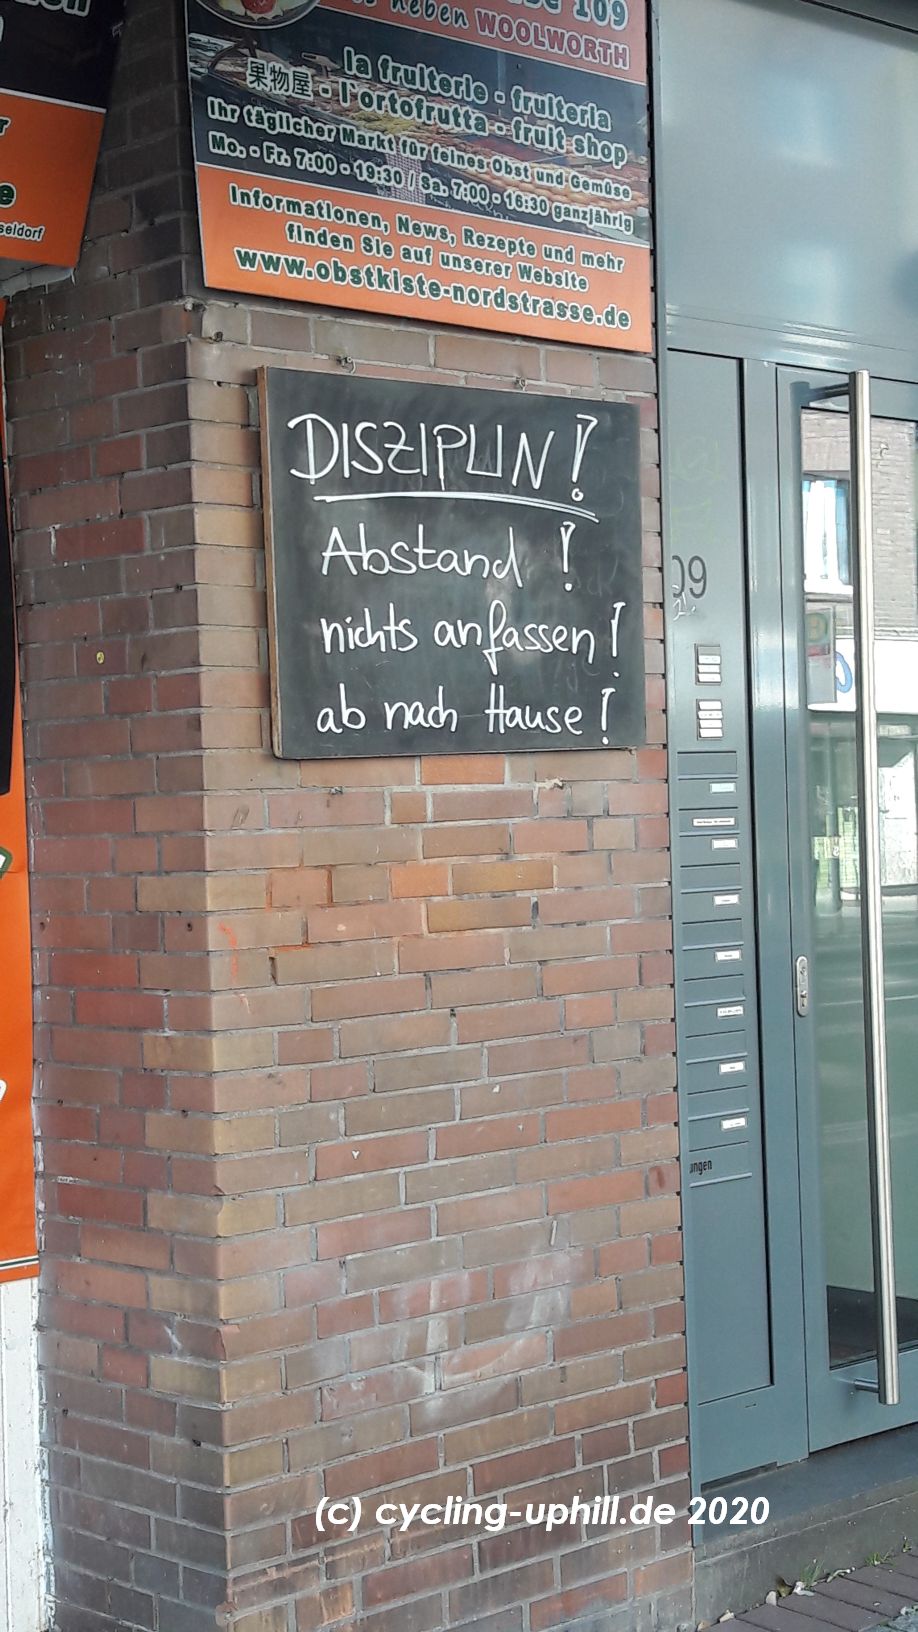 109
neben WOOLWORTH
la fruiterie - fruiteria
果物屋 - l'ortofrutta - fruit shop
Ihr täglicher Markt für feines Obst und Gemüse
Mo. - Fr. 7:00 - 19:30 / Sa. 7:00 - 16:30 ganzjährig
Informationen, News, Rezepte und mehr
finden Sie auf unserer Website
www.obstkiste-nordstrasse.de
DISZIPLIN!
Abstand !
nichts anfassen!
ab nach Hause!
09
ungen
(c) cycling-uphill.de 2020